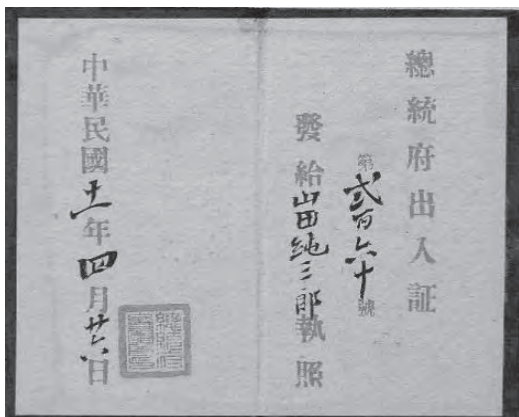 總統府出入証
第弍百六十號
發給山田純三郎執照
中華民國十一年四月廿六日